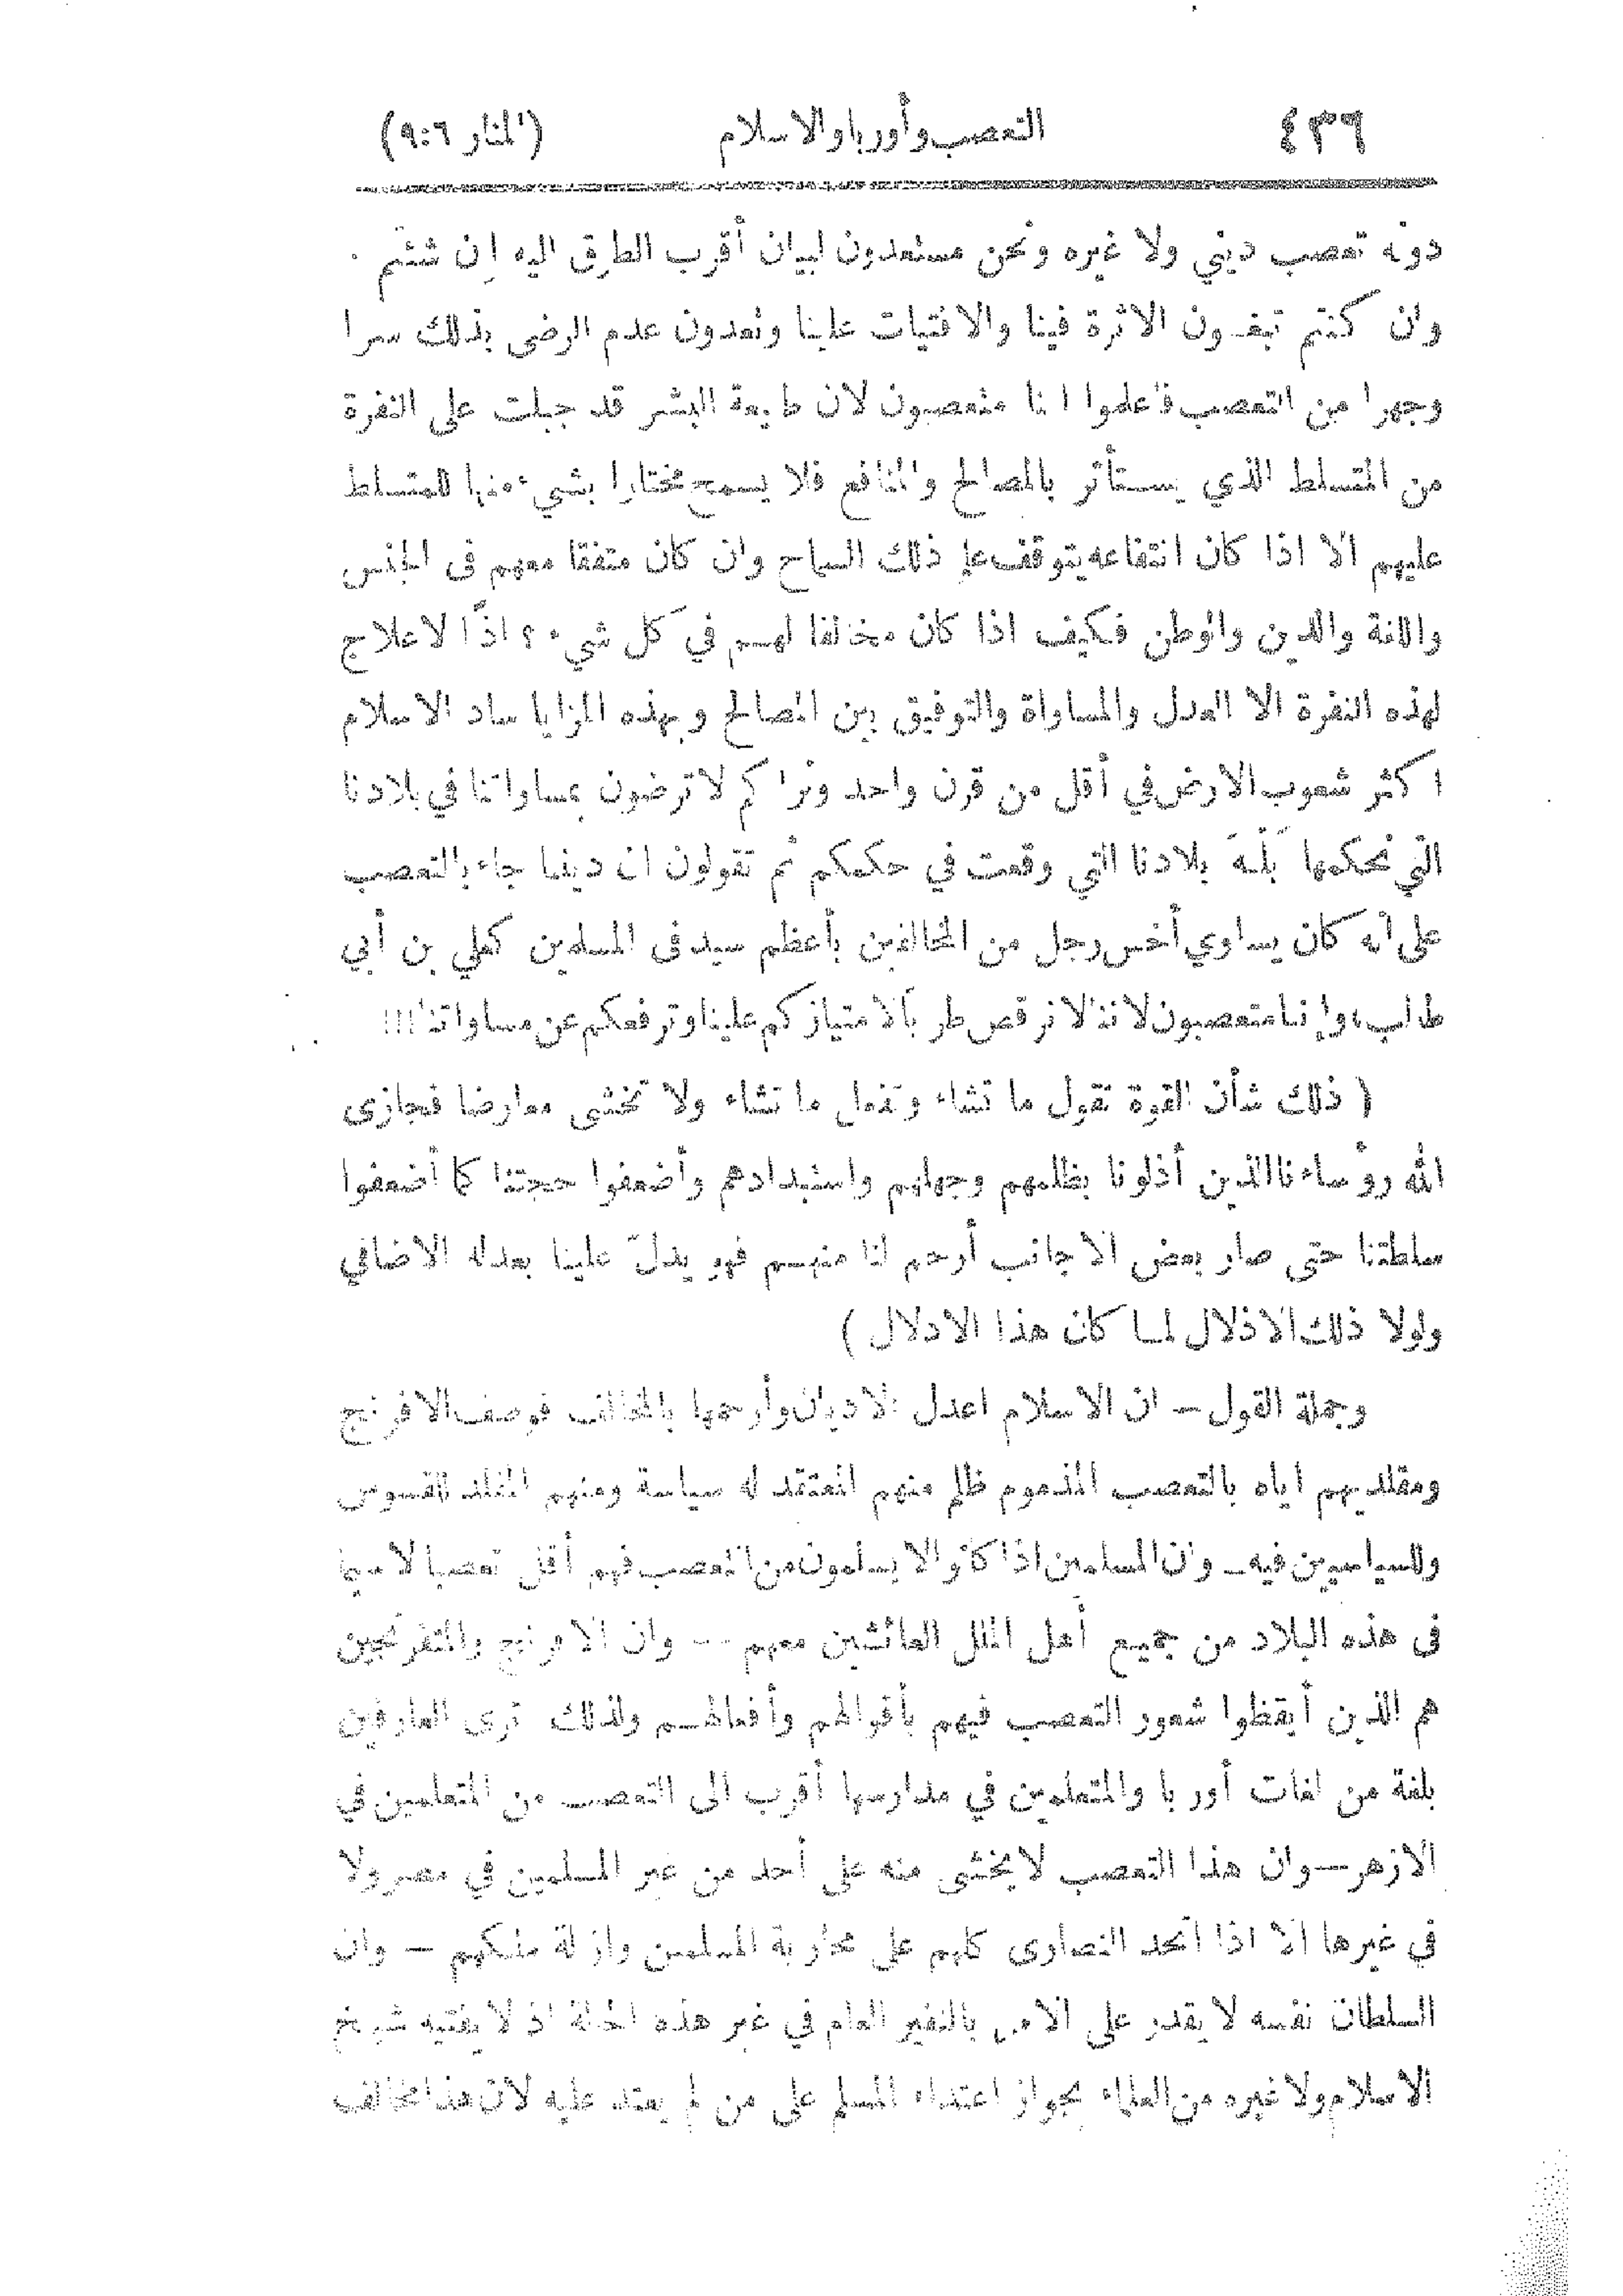 ٤٣٦ التعصب وأوربا والاسلام (المنار ٩:٦)
دونه تعصب ديني ولا غيره ونحن مستعدون لبيان أقرب الطرق اليه إن شئتم .
وان كنتم تبغـون الاثرة فينا والافتيات علينا وتعدون عدم الرضى بذلك سرا
وجهرا من التعصب فاعلموا اننا متعصبون لان طبيعة البشر قد جبلت على النفرة
من المتسلط الذي يستأثر بالمصالح والمنافع فلا يسمح مختارا بشيء منها للمتسلط
عليهم الا اذا كان انتفاعه يتوقف على ذلك السماح وان كان متفقا معهم في الجنس
واللغة والدين والوطن فكيف اذا كان مخالفا لهـم في كل شيء ؟ اذًا لا علاج
لهذه النفرة الا العدل والمساواة والتوفيق بين المصالح وبهذه المزايا ساد الاسلام
اكثر شعوب الارض في أقل من قرن واحد ونراكم لا ترضون بمساواتنا في بلادنا
التي نحكمها بَلْهَ بلادنا التي وقعت في حكمكم ثم تقولون ان ديننا جاء بالتعصب
على انه كان يساوي أخس رجل من المخالفين بأعظم سيد في المسلمين كعلي بن أبي
طالب، وإننا متعصبون لاننا لا نرقص طربا لامتيازكم علينا وترفعكم عن مساواتنا!!!
( ذلك شأن القوة تقول ما تشاء وتفعل ما تشاء ولا تخشى معارضا فيجازى
الله رؤساءنا الذين أذلونا بظلمهم وجهلهم واستبدادهم وأضعفوا حجتنا كما أضعفوا
سلطتنا حتى صار بعض الاجانب أرحم لنا منهـم فهو يدلّ علينا بعدله الاضافي
ولولا ذلك الاذلال لما كان هذا الادلال )
وجملة القول – ان الاسلام اعدل الاديان وأرحمها بالمخالف فوصف الافرنج
ومقلديهم اياه بالتعصب المذموم ظلم منهم المعتقد له سياسة ومنهم المقلد للقسوس
وللسياسيين فيه – وان المسلمين اذا كانوا لا يسلمون من التعصب فهم أقل تعصبا لا سيما
في هذه البلاد من جميع أهل الملل العائشين معهم – وان الافرنج والمتفرنجين
هم الذين أيقظوا شعور التعصب فيهم بأقوالهم وأفعالهـم ولذلك ترى العارفين
بلغة من لغات أوربا والمتعلمين في مدارسها أقرب الى التعصب من المتعلمين في
الازهر – وان هذا التعصب لا يخشى منه على أحد من غير المسلمين في مصر ولا
في غيرها الا اذا اتحد النصارى كلهم على محاربة المسلمين وازالة ملكهم – وان
السلطان نفسه لا يقدر على الامر بالنفير العام في غير هذه الحالة اذ لا يفتيه شيخ
الاسلام ولا غيره من العلماء بجواز اعتداء المسلم على من لم يعتد عليه لان هذا مخالف